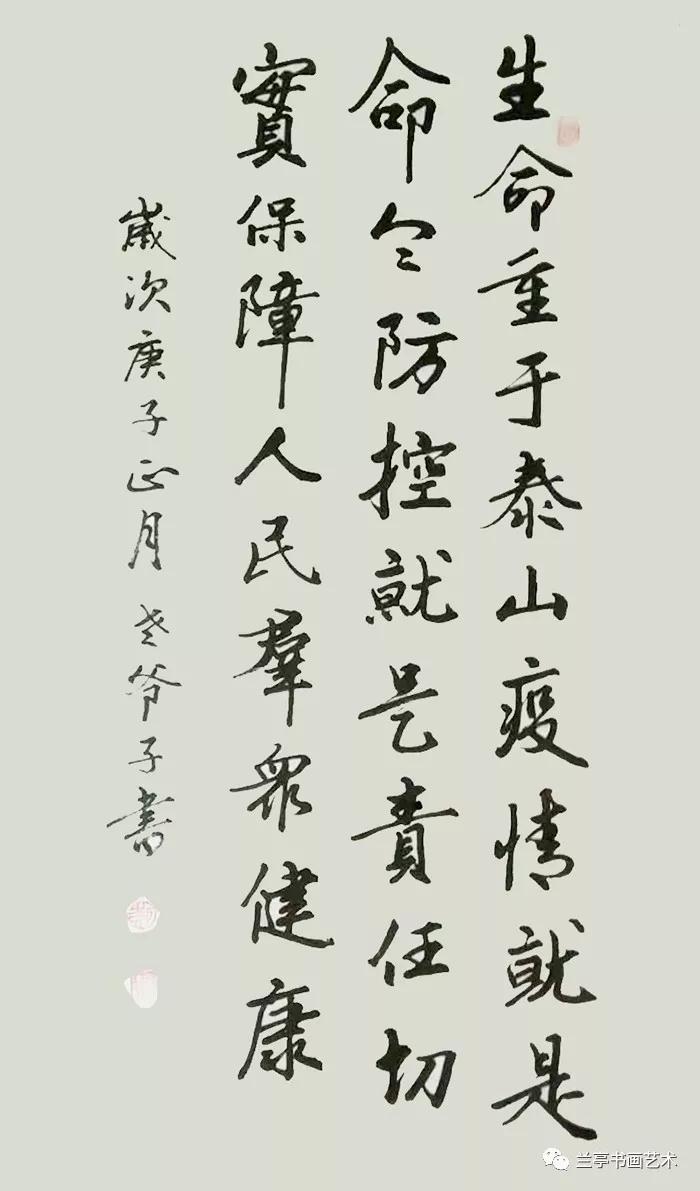 生命重于泰山疫情就是
命令防控就是责任切
實保障人民羣眾健康
歲次庚子正月老爷子書
兰亭书画艺术